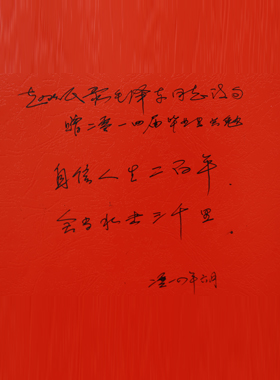 赵继民录毛泽东同志诗句
赠二零一四届毕业生共勉
自信人生二百年，
会当水击三千里。
二零一四年六月